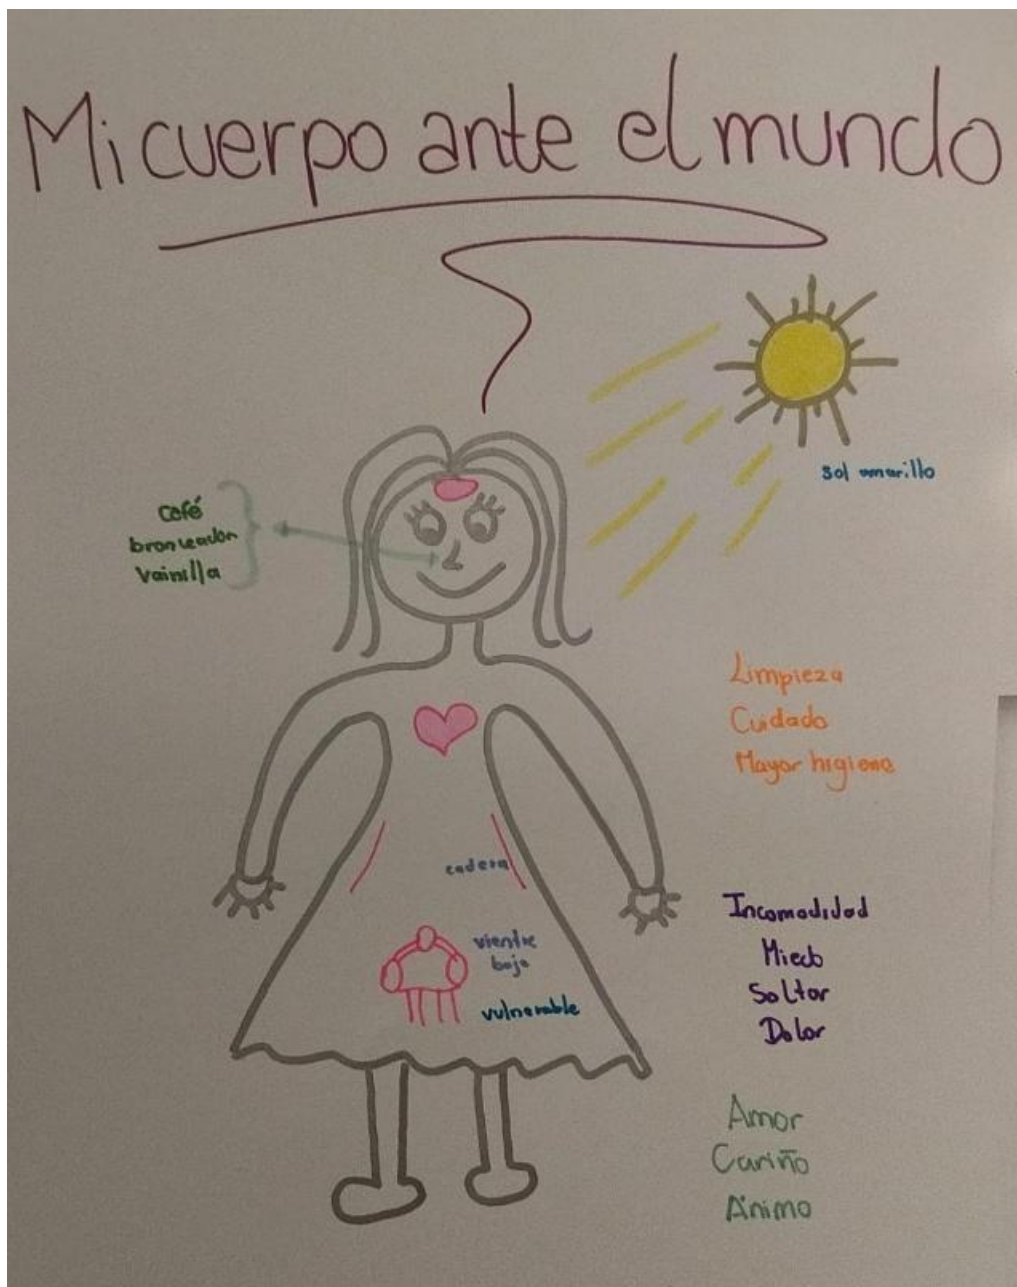 Mi cuerpo ante el mundo
sol amarillo
café
bronceador
vainilla
Limpieza
Cuidado
Mayor higiene
cadera
vientre
bajo
vulnerable
Incomodidad
Miedo
Soltar
Dolor
Amor
Cariño
Animo